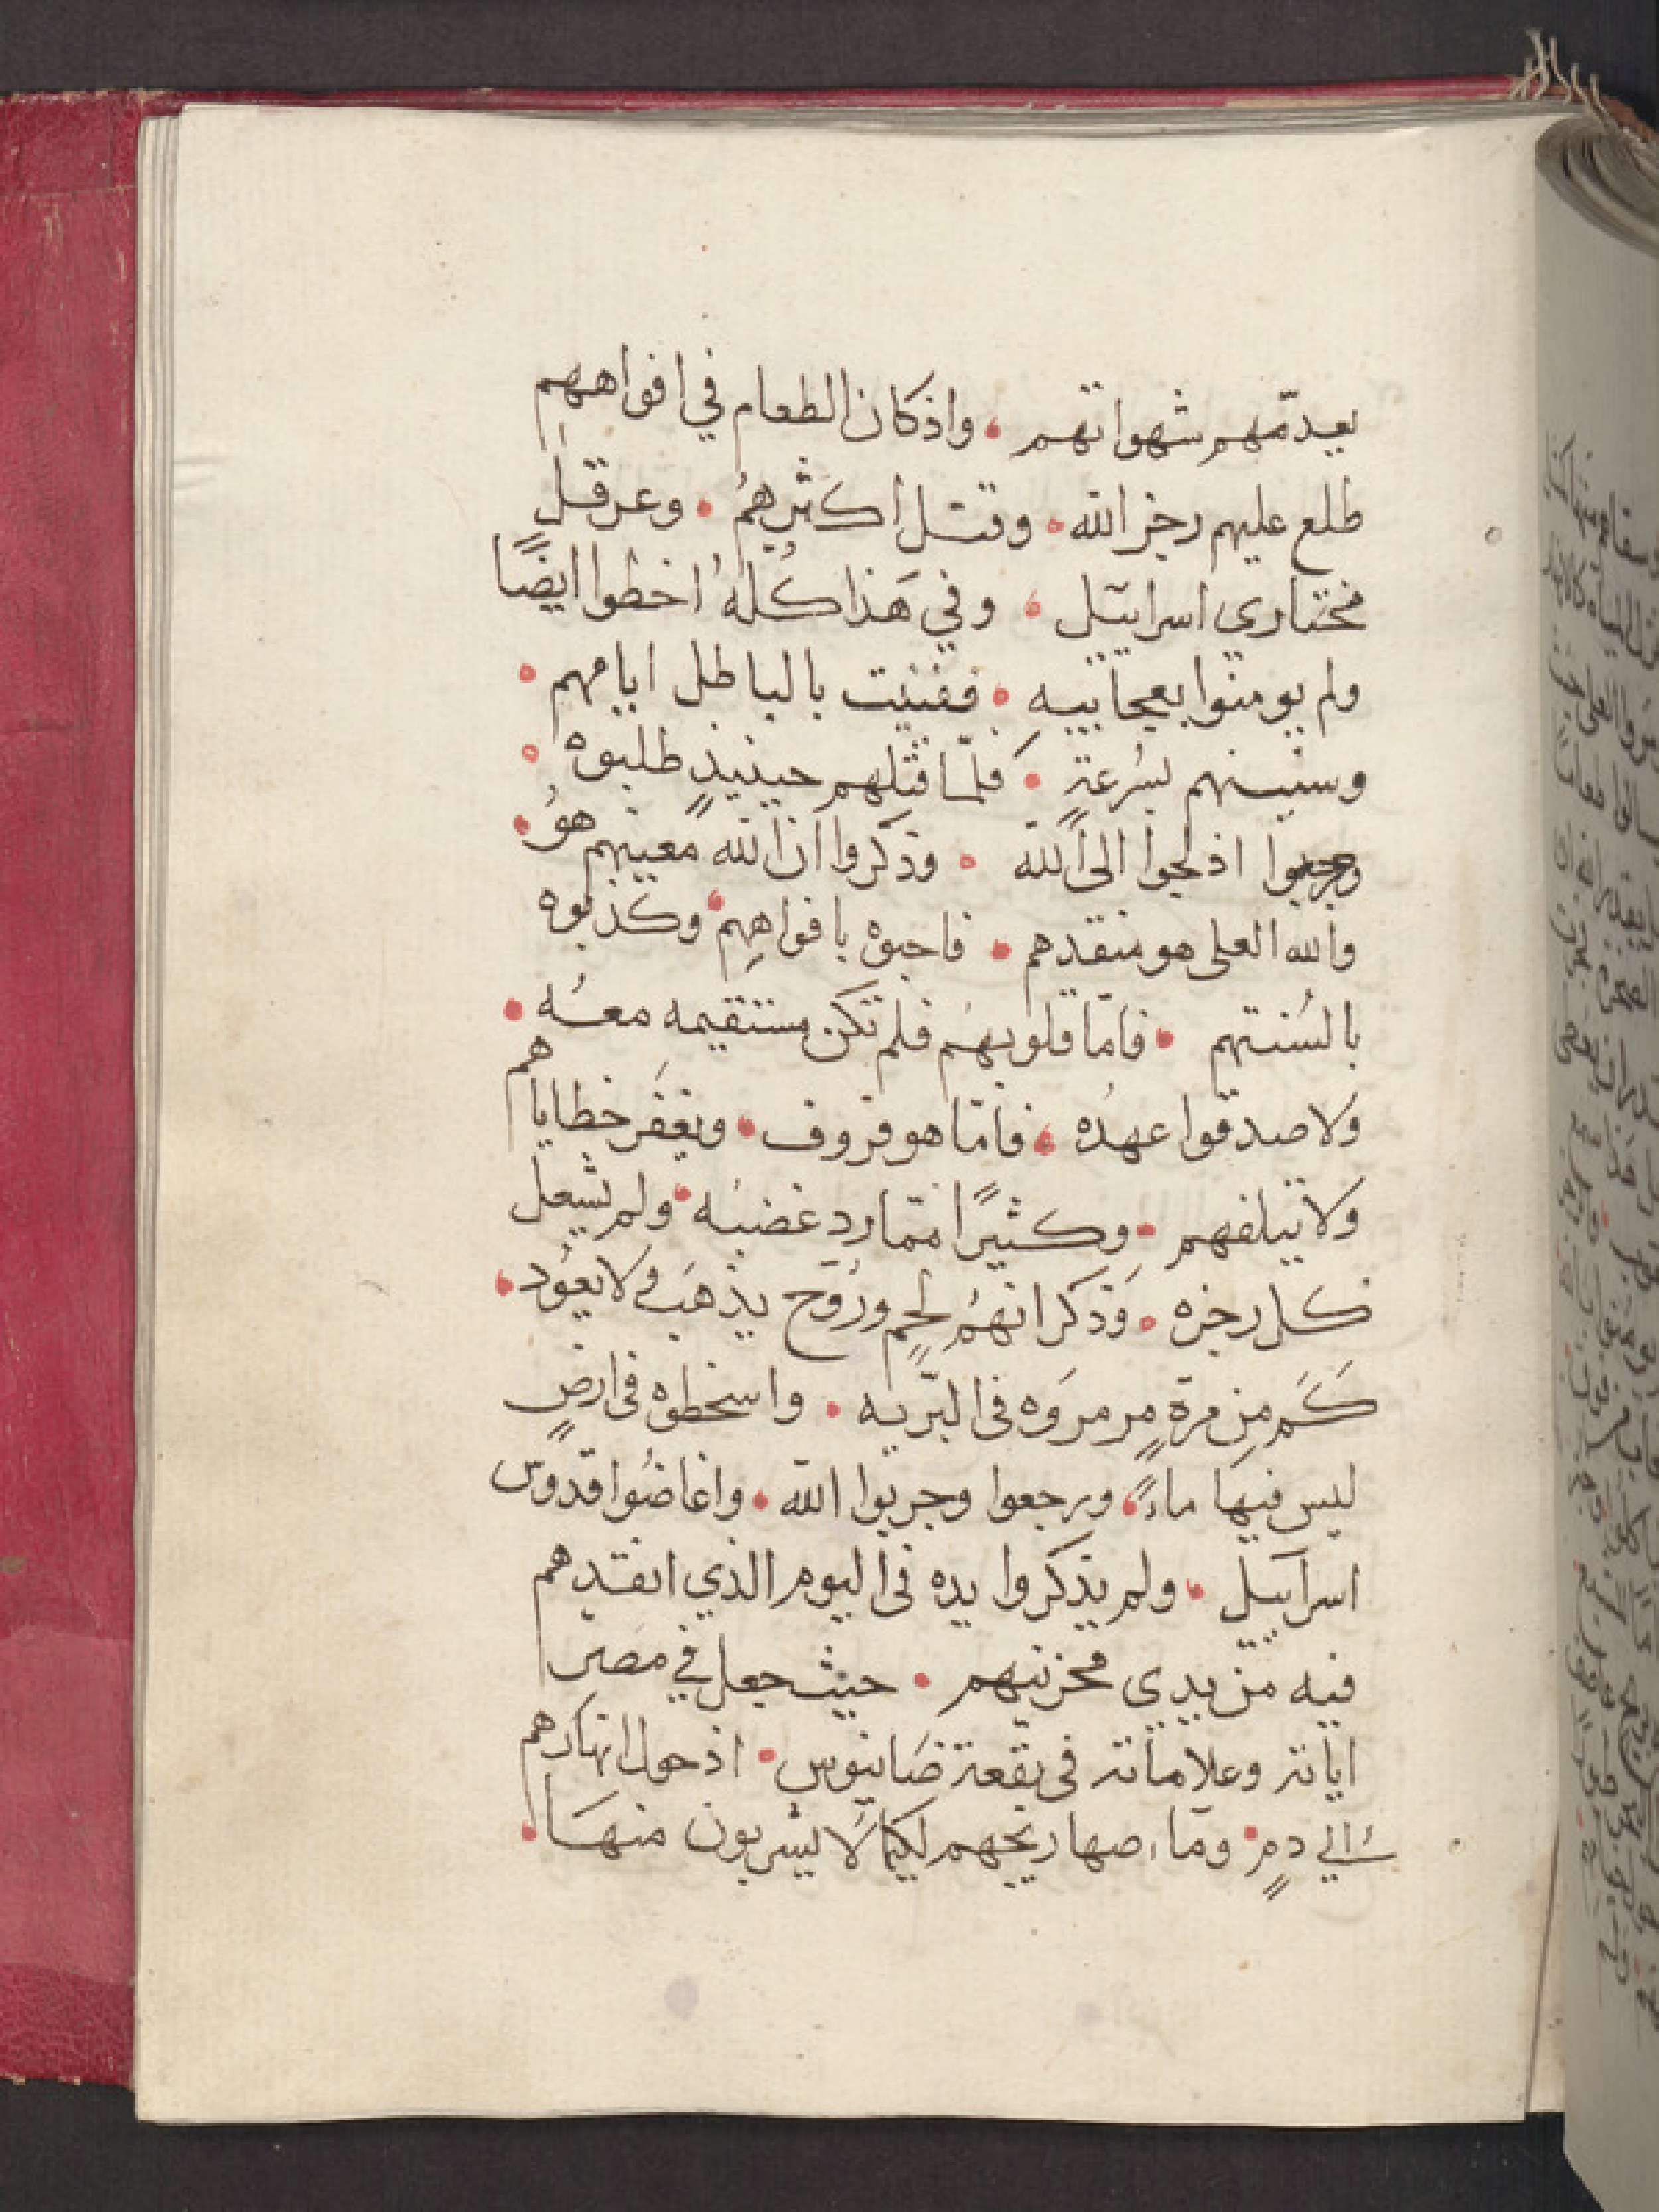 يعدمّهم شهواتهم • واذ كان الطعام في افواههم
طلع عليهم رجز الله • وقتل اكثرهمُ • وعرقل
مختاري اسراييل • وفي هَذا كُله اخطوا ايضًا
ولم يومنوا بعجاييبهِ • ففنيت بالباطل ايامهم •
وسنينهم بسُرعةٍ • فلمّا قتلهم حينيذٍ طلبوه •
اذلجوا الى الله • وذكروا ان الله معينهم هوُ •
والله العلى هو منقدهم • فاحبوه بافواهِهم • وكذبوه
بالسُنتهم • فامّا قلوبهمُ فلم تكن مستقيمه معهُ •
ولا صدقوا عهدُه • فامّا هو فروف • ويغفر خطاياهم
ولا يتلفهم • وكثيرًا ممّا رد غضبهُ • ولم يشعل
كل رجزه • وَذكر انهمُ لحمٍ ورُوح يذهَب ولا يعوُد •
كَم مِن مرةٍ مرمروَه فى البرّيه • واسخطوه فى ارضٍ
ليس فيهَا ماءً • ورجعوا وجربوا الله • واغاضُوا قدوس
اسراييل • ولم يذكروا يده فى اليوم الذي انقدهم
فيه من يدي محزنيهم • حيث جعل في مصر
اياته وعلاماته فى بقعة صَانيوس • اذ حول انهارهم
الي دمٍ • وماء صهاريجهم لكيمَا لا يشربون منهَا •